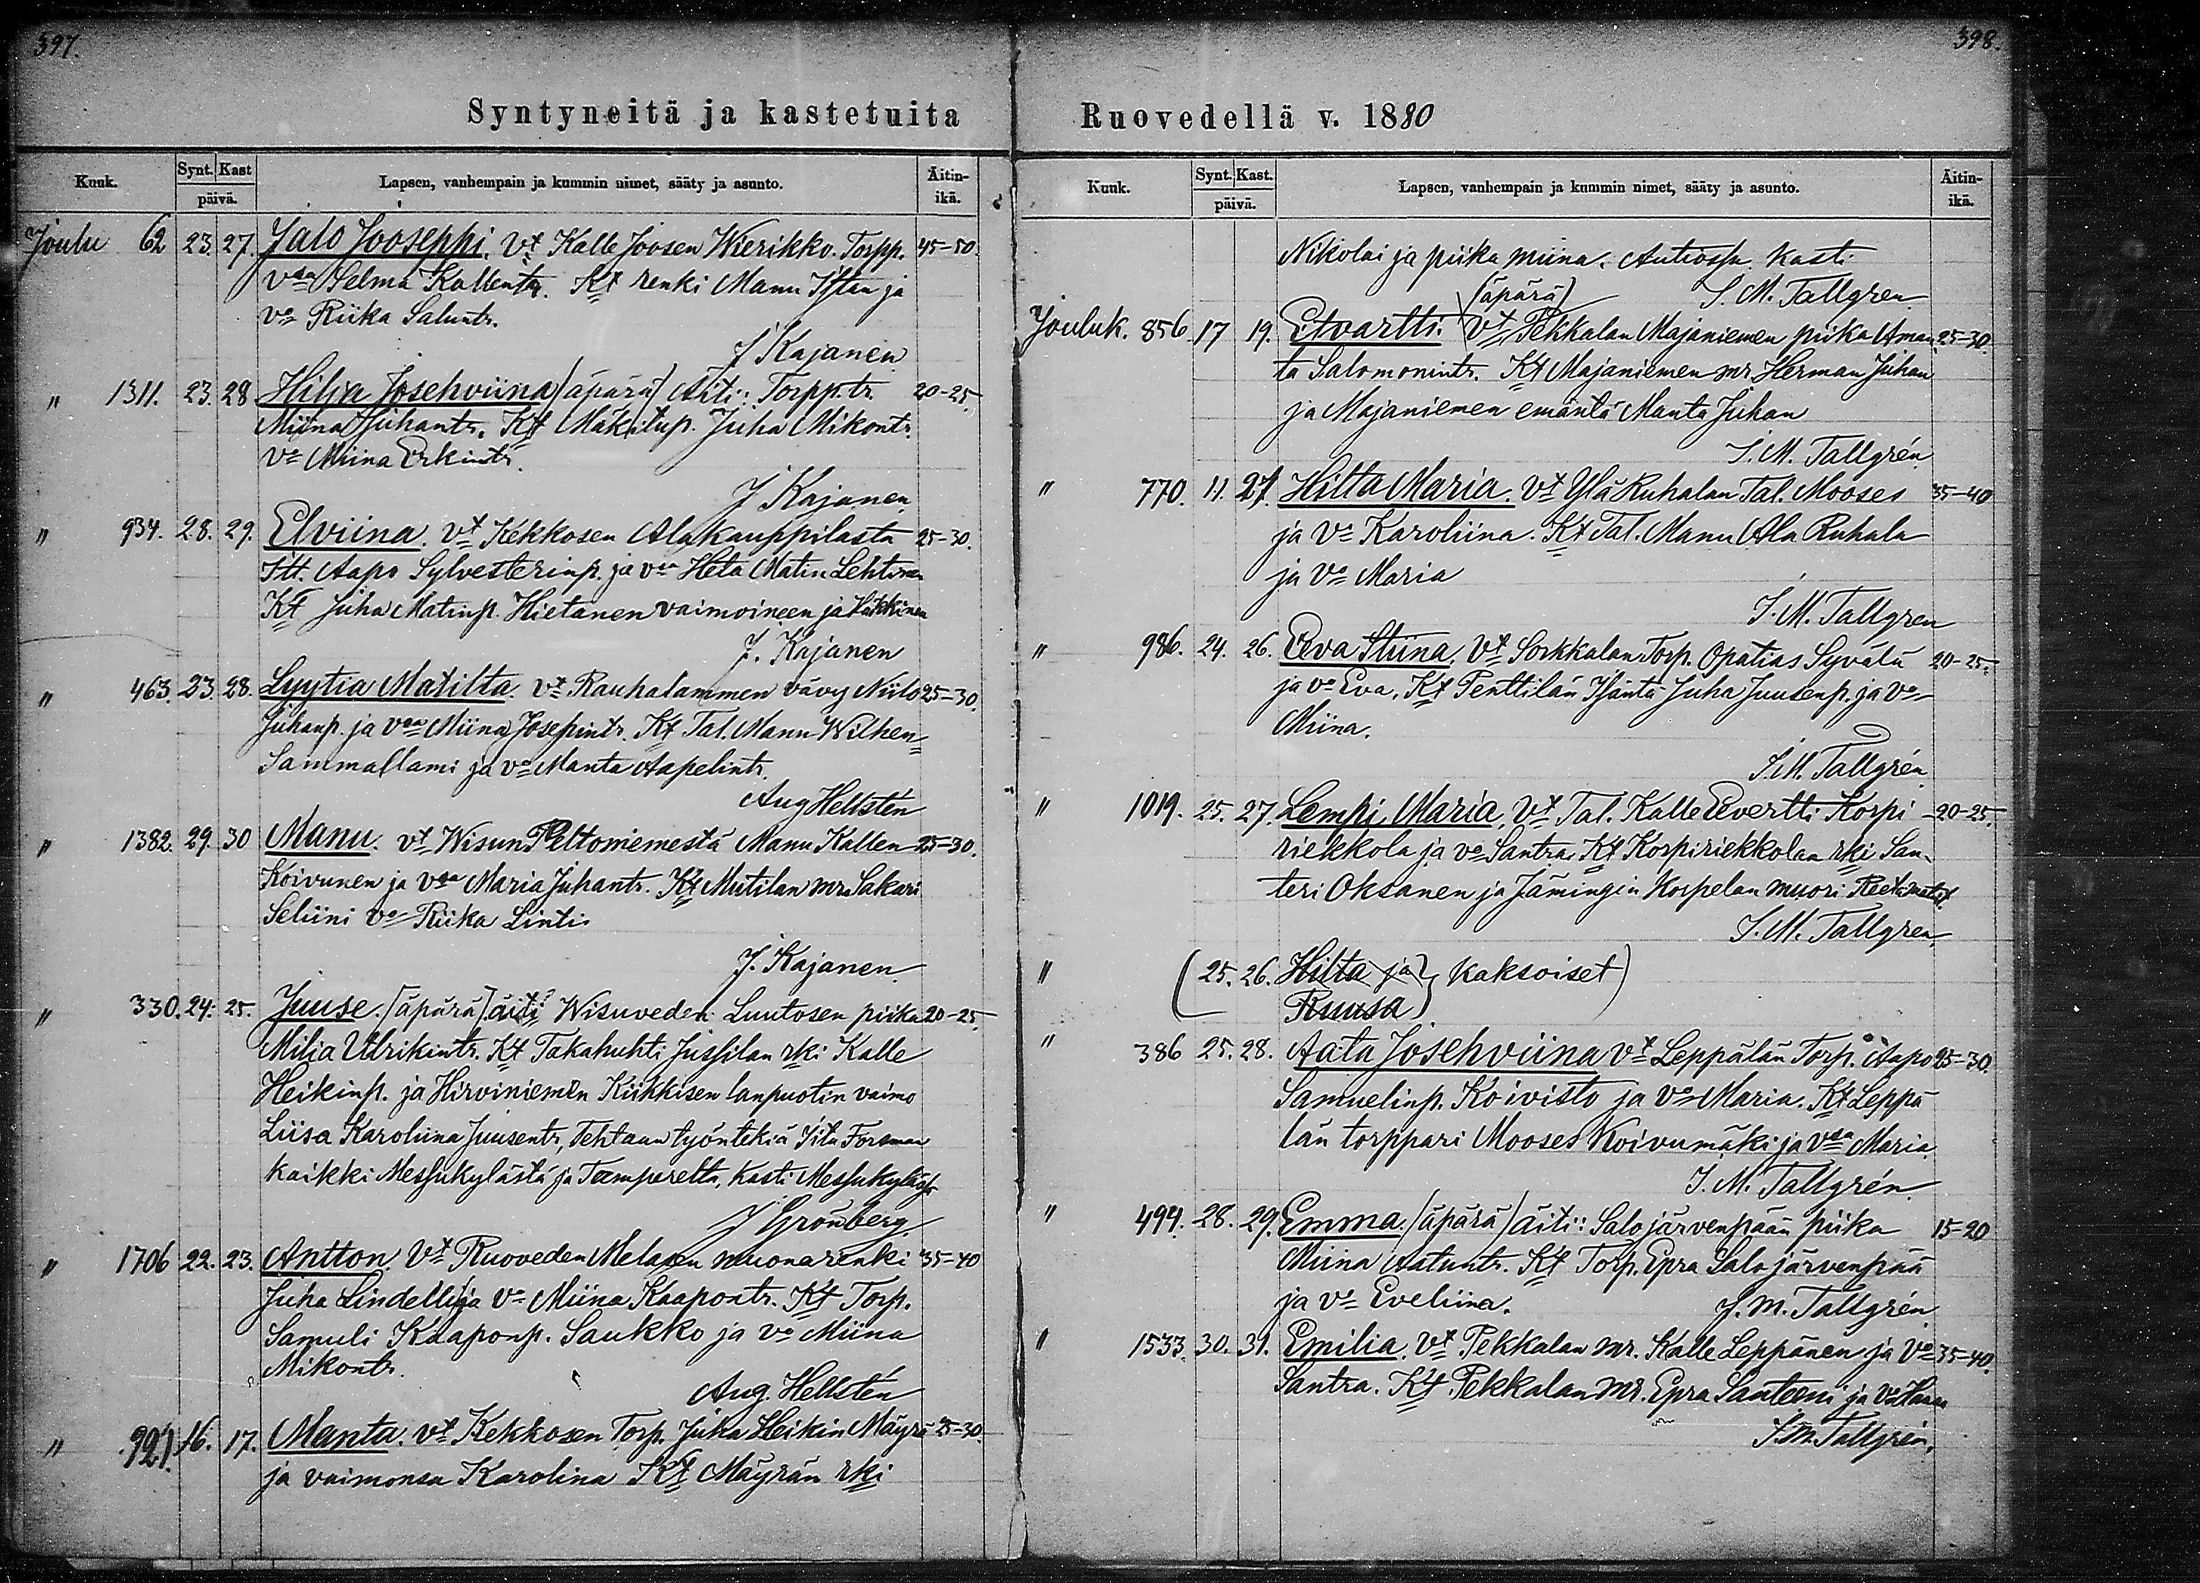 397.
Syntyneitä ja kastetuita
Kuuk. Synt. Kast päivä. Lapsen, vanhempain ja kummin nimet, sääty ja asunto. Äitin-ikä.
Joulu 62 23. 27. Jalo Jooseppi. Vt Kalle Joosen Wierikko. Torpp. 45-50.
vsa Selma Kallentr. Kt renki Manu Iftan ja
vo Riika Saluntr.
J Kajanen
" 1311. 23. 28 Hilja Josehviina (äpärä) Äiti: Torpp.tr. 20-25.
Miina Juhantr. Kt Mäkitup. Juha Mikontr.
Vo Miina Erkintr.
J Kajanen.
" 934. 28. 29. Elviina. Vt Kekkosen Alakauppilasta 25-30.
Itt. Aapo Sylvesterinp. ja vsa Heta Matin Lehtinen
Kt Juha Matinp. Hietanen vaimoineen ja Hakkinen
J. Kajanen
" 463. 23. 28. Lyytia Matilta. Vt Rauhalammen vävy Niilo 25-30.
Juhanp. ja vaa Miina Josepintr. Kt Tal. Manu Wilhen=
Sammallami ja vo Manta Aapelintr.
Aug Hellstén
" 1382. 29. 30 Manu. vt Wisun Peltoniemestä Manu Kallen 25-30.
Koivunen ja vaa Maria Juhantr. Kt Mutilan mr. Sakari
Seliini vo Riika Linti.
J. Kajanen.
" 330. 24. 25. Juuse. (äpärä) äiti Wisuveden Luutosen piika 20-25.
Milia Ulrikintr. Kt Takahuhti Jussilan rki Kalle
Heikinp. ja Hirviniemen Kiikkisen lanpuotin vaimo
Liisa Karoliina Juusentr, Tehtaan työntekiä Iita Forsman
kaikki Messukylästä ja Tamperelta, kasti Messukylässä
J Grönberg.
" 1706 22. 23. Antton. Vt Ruoveden Melasen muonarenki 35-40
Juha Lindelli ja Vo Miina Kaapontr. Kt Torp.
Samuli Kaaponp. Saukko ja Vo Miina
Mikontr.
Aug. Hellstén
" 927. 16. 17. Manta. vt Kekkosen Torp. Juha Heikin Mäyrä 25-30.
ja vaimonsa Karolina Kt Mäyrän rki
398.
Ruovedellä v. 1880
Kuuk. Synt. Kast. päivä. Lapsen, vanhempain ja kummin nimet, sääty ja asunto. Äitin-ikä.
Nikolai ja piika Miina. Autiossa kasti
S. M. Tallgren
(äpärä)
Jouluk. 856. 17 19. Etvartti. Vt Pekkalan Majaniemen piika Aman 25-30.
ta Salomonintr. Kt Majaniemen mr. Herman Juhan
ja Majaniemen emäntä Manta Juhan
S. M. Tallgrén
" 770. 11. 27. Hilta Maria. Vt Ylä Ruhalan Tal. Mooses 35-40
ja Vo Karoliina. Kt Tal. Manu Ala Ruhala
ja Vo Maria
S. M. Tallgren
" 986. 24. 26. Eeva Stiina. Vt Sorkkalan Torp. Opatias Syvälä 20-25.
ja vo Eva, Kt Penttilän Isäntä Juha Juusenp. ja Vo
Miina.
S. M. Tallgrén
" 1019. 25. 27. Lempi Maria. Vt Tal. Kalle Eevertti Korpi 20-25.
riekkola ja vo Santra. Kt Korpiriekkolan rki San-
teri Oksanen ja Jämingin Korpelan muori
S. M. Tallgren.
" (25. 26. Hilta ja kaksoiset)
Ruusa
" 386 25. 28. Aata Josehviina Vt Leppälän Torp. Aapo 25-30.
Samuelinp. Koivisto ja Vo Maria. Kt Leppä
län torppari Mooses Koivumäki ja vsa Maria.
S. M. Tallgrén.
" 494. 28. 29. Emma. (äpärä) Äiti: Salojärvenpään piika 15-20
Miina Aatuntr. Kt Torp. Epra Salojärvenpää
ja Vo Eveliina. S. M. Tallgrén.
" 1533. 30. 31. Emilia. Vt Pekkalan mr. Kalle Leppänen ja Vo 35-40.
Santra. Kt Pekkalan mr. Epra Santeeni ja vo Hanna
S. M. Tallgrén.